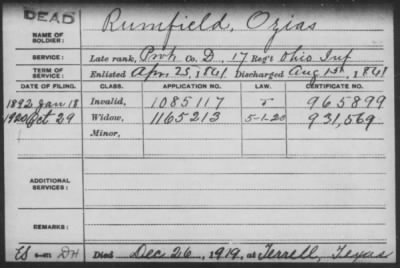 DEAD
NAME OF SOLDIER: Rumfield, Ozias
SERVICE: Late rank, Prvt Co. D, 17 Reg't Ohio Inf
TERM OF SERVICE: Enlisted Apr. 25, 1861 Discharged Aug 15, 1861
DATE OF FILING. CLASS. APPLICATION NO. LAW. CERTIFICATE NO.
1892 Jan 18 Invalid, 1085117 965899
1920 Oct 29 Widow, 1165213 5-1-20 931,569
Minor,
ADDITIONAL SERVICES:
REMARKS:
Died Dec 26, 1919, at Terrell, Texas